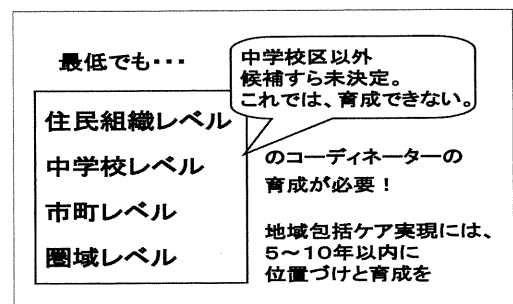 最低でも・・・
中学校区以外
候補すら未決定。
これでは、育成できない。
住民組織レベル
中学校レベル
市町レベル
圏域レベル
のコーディネーターの
育成が必要！
地域包括ケア実現には、
５～１０年以内に
位置づけと育成を